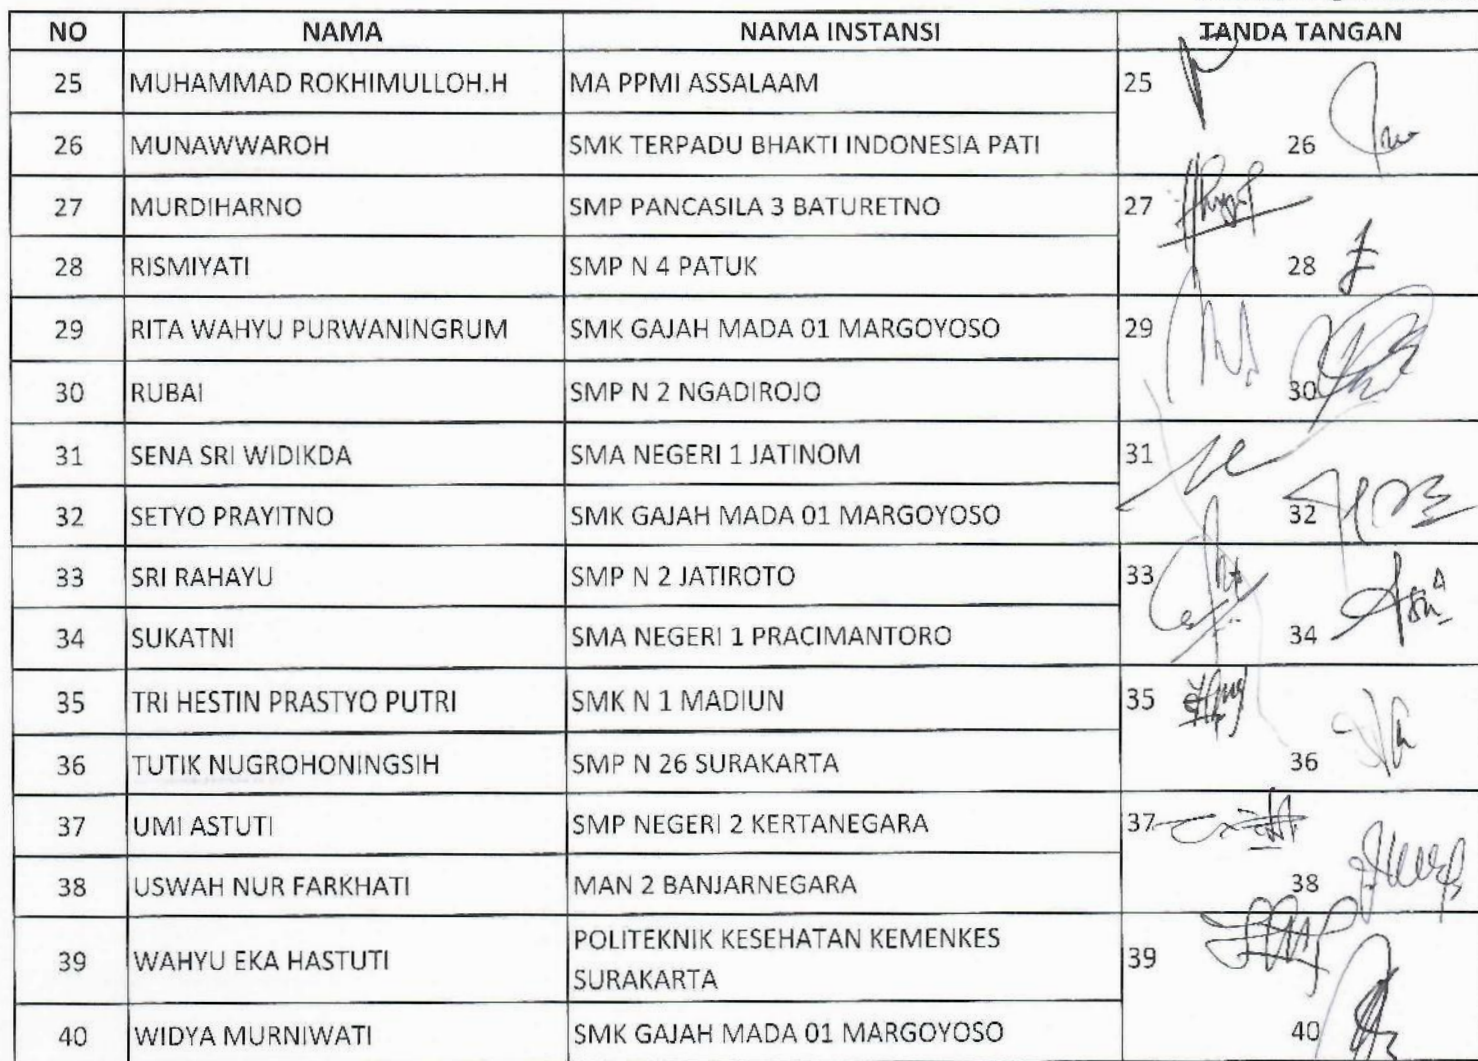 NO NAMA NAMA INSTANSI TANDA TANGAN
25 MUHAMMAD ROKHIMULLOH.H MA PPMI ASSALAAM 25
26 MUNAWWAROH SMK TERPADU BHAKTI INDONESIA PATI 26
27 MURDIHARNO SMP PANCASILA 3 BATURETNO 27
28 RISMIYATI SMP N 4 PATUK 28
29 RITA WAHYU PURWANINGRUM SMK GAJAH MADA 01 MARGOYOSO 29
30 RUBAI SMP N 2 NGADIROJO 30
31 SENA SRI WIDIKDA SMA NEGERI 1 JATINOM 31
32 SETYO PRAYITNO SMK GAJAH MADA 01 MARGOYOSO 32
33 SRI RAHAYU SMP N 2 JATIROTO 33
34 SUKATNI SMA NEGERI 1 PRACIMANTORO 34
35 TRI HESTIN PRASTYO PUTRI SMK N 1 MADIUN 35
36 TUTIK NUGROHONINGSIH SMP N 26 SURAKARTA 36
37 UMI ASTUTI SMP NEGERI 2 KERTANEGARA 37
38 USWAH NUR FARKHATI MAN 2 BANJARNEGARA 38
39 WAHYU EKA HASTUTI POLITEKNIK KESEHATAN KEMENKES 39
SURAKARTA
40 WIDYA MURNIWATI SMK GAJAH MADA 01 MARGOYOSO 40